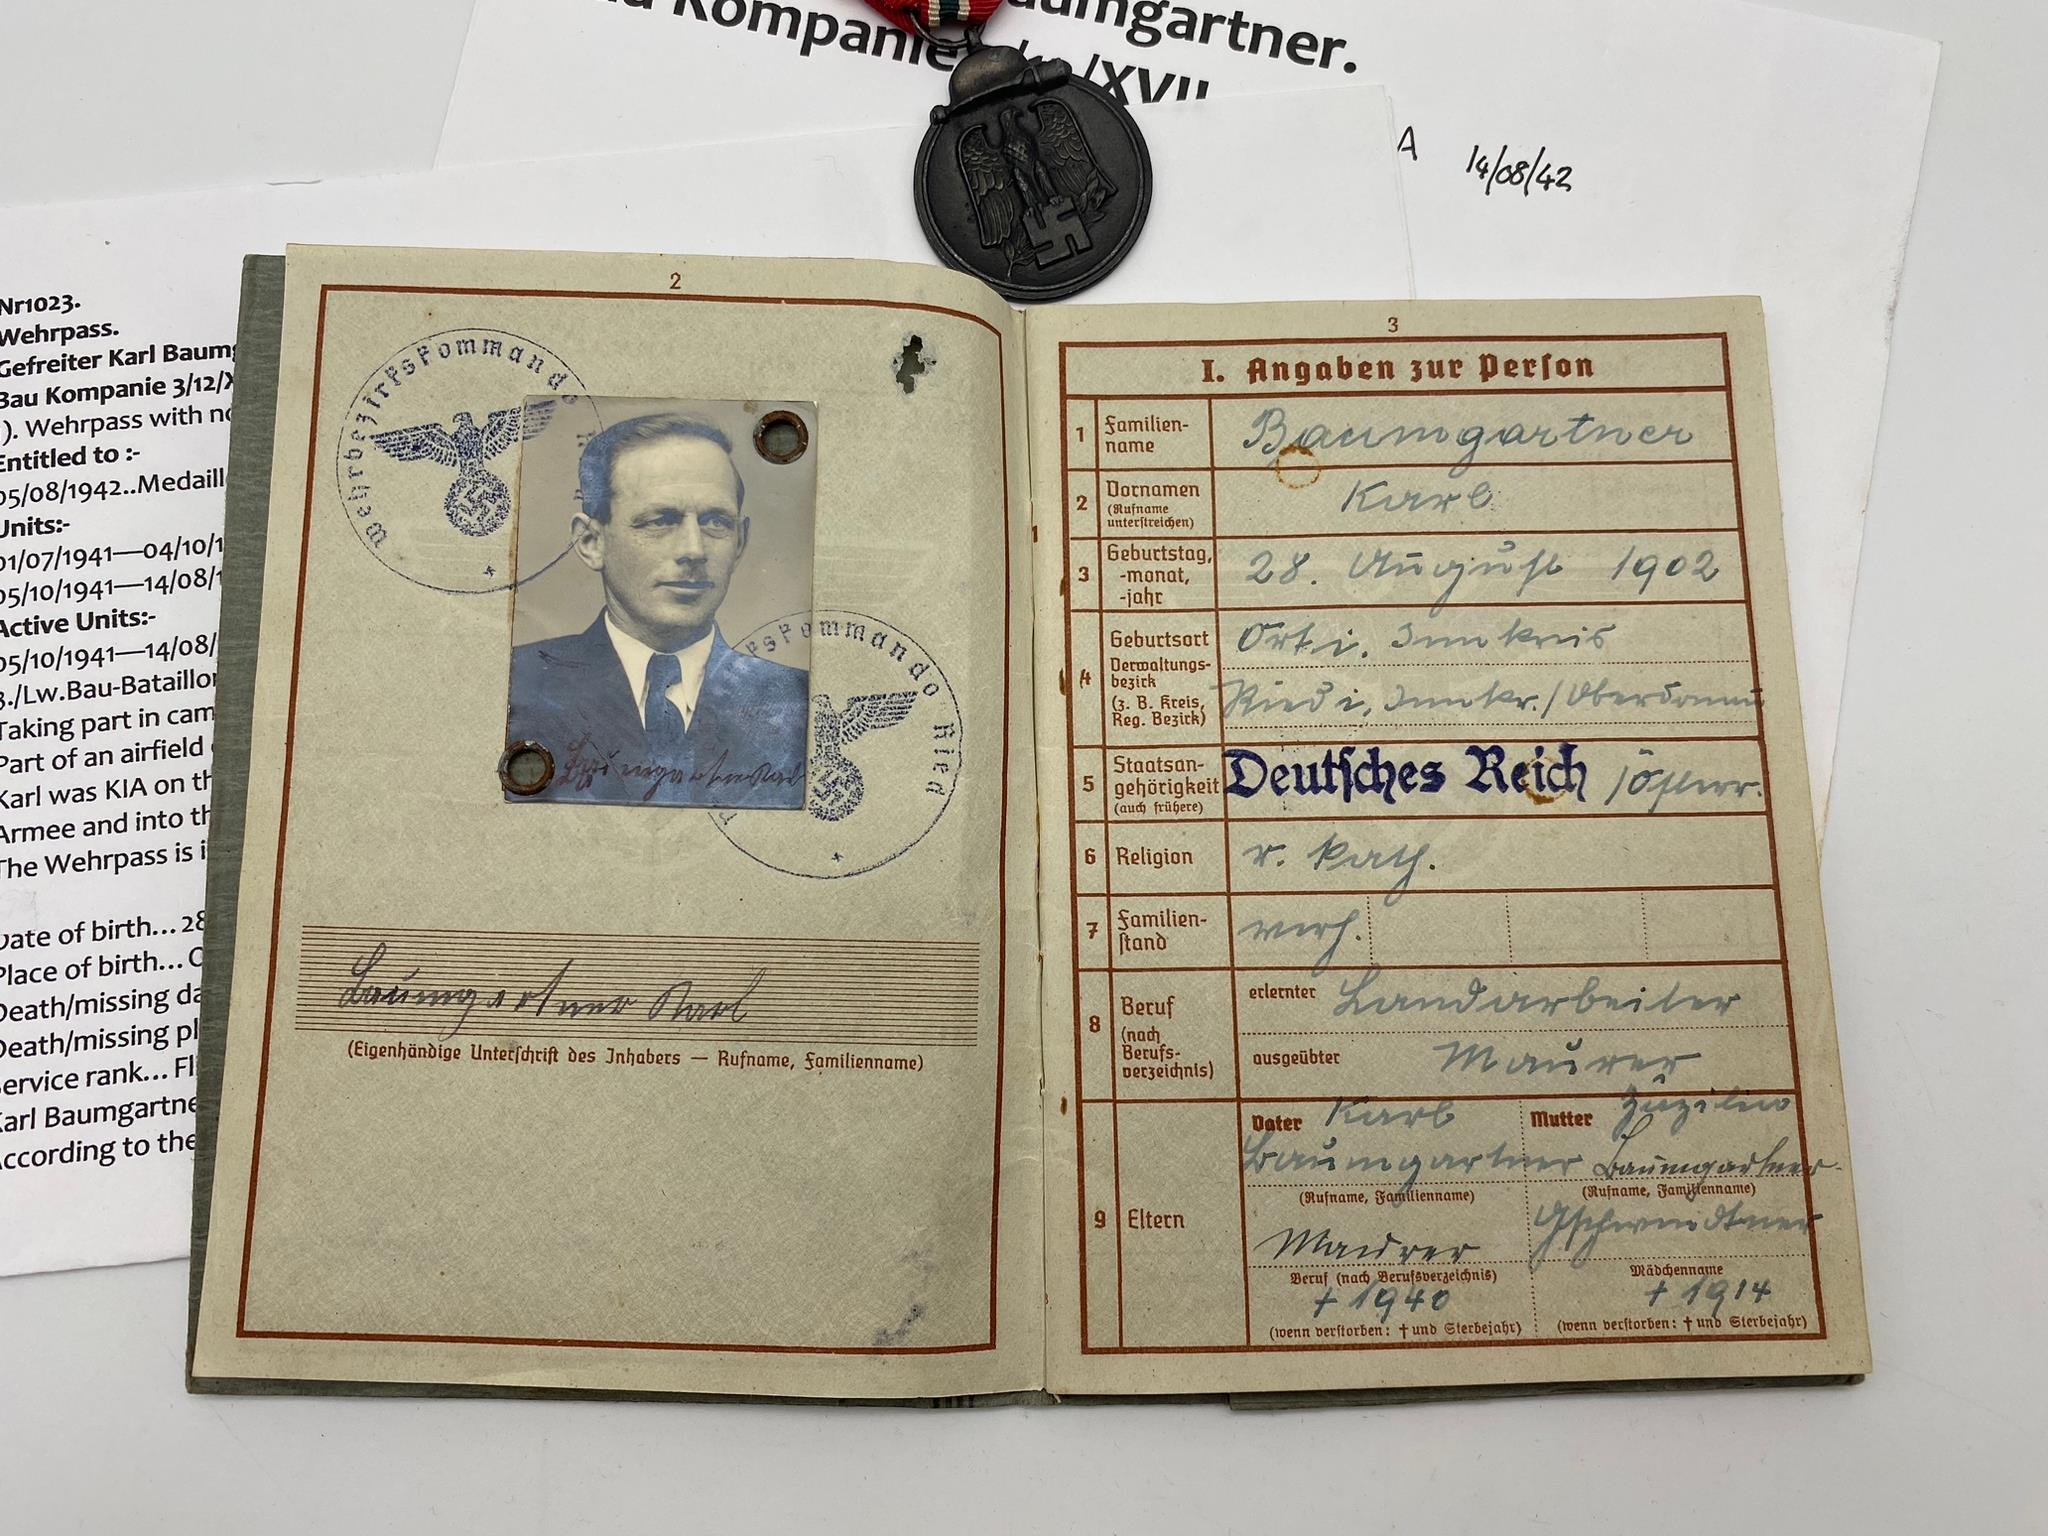 aumgartner.
Kompanie
/XVII
A 14/08/42
Nr1023.
Wehrpass.
Gefreiter Karl Baumg
Bau Kompanie 3/12/X
). Wehrpass with no
Entitled to :-
05/08/1942..Medaill
Units:-
01/07/1941—04/10/1
05/10/1941—14/08/1
Active Units:-
05/10/1941—14/08/
3./Lw.Bau-Bataillon
Taking part in cam
Part of an airfield
Karl was KIA on th
Armee and into th
The Wehrpass is i
Date of birth... 28
Place of birth... O
Death/missing da
Death/missing pl
Service rank... Fl
Karl Baumgartne
According to the
2
Wehrbezirkskommando
kskommando Ried
Baumgartner Karl
Baumgartner Karl
(Eigenhändige Unterschrift des Inhabers — Rufname, Familienname)
3
I. Angaben zur Person
1 Familien-
name
Baumgartner
2 Vornamen
(Rufname
unterstreichen)
Karl
3 Geburtstag,
-monat,
-jahr
28. August 1902
4 Geburtsort
Verwaltungs-
bezirk
(z. B. Kreis,
Reg. Bezirk)
Ort i. Innkreis
Ried i. Innkr./Oberdonau
5 Staatsan-
gehörigkeit
(auch frühere)
Deutsches Reich /österr.
6 Religion
r. kath.
7 Familien-
stand
verh.
8 Beruf
(nach
Berufs-
verzeichnis)
erlernter Landarbeiter
ausgeübter Maurer
9 Eltern
Vater Karl
Baumgartner
(Rufname, Familienname)
Maurer
Beruf (nach Berufsverzeichnis)
† 1940
(wenn verstorben: † und Sterbejahr)
Mutter Zäzilia
Baumgartner
(Rufname, Familienname)
Gschwendtner
Mädchenname
† 1914
(wenn verstorben: † und Sterbejahr)